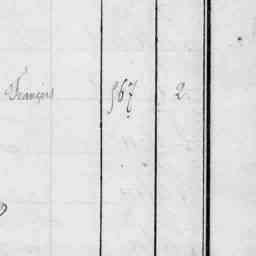 François 567 2